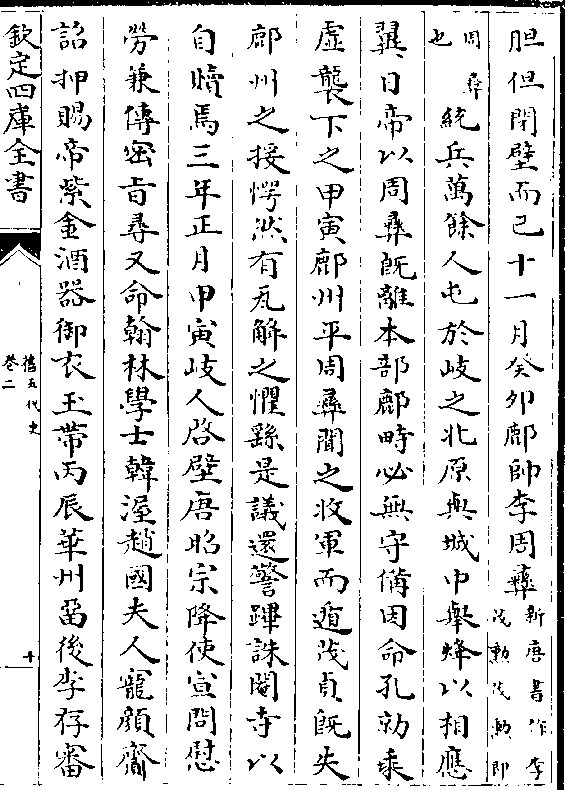 胆但閉壁而已十一月癸卯鄜帥李周彞新唐書作李茂勲茂勲即
周彞也統兵萬餘人屯於岐之北原與城中舉烽以相應
翼日帝以周彞既離本部鄜畤必無守備因命孔勍乘
虛襲下之甲寅鄜州平周彞聞之收軍而遁茂貞既失
鄜州之援愕然有瓦解之懼繇是議還警蹕誅閹寺以
自贖焉三年正月甲寅岐人啓壁唐昭宗降使宣問慰
勞兼傳密旨尋又命翰林學士韓渥趙國夫人寵顔齎
詔押賜帝紫金酒器御衣玉帶丙辰華州留後李存審
欽定四庫全書
舊五代史
卷二
十